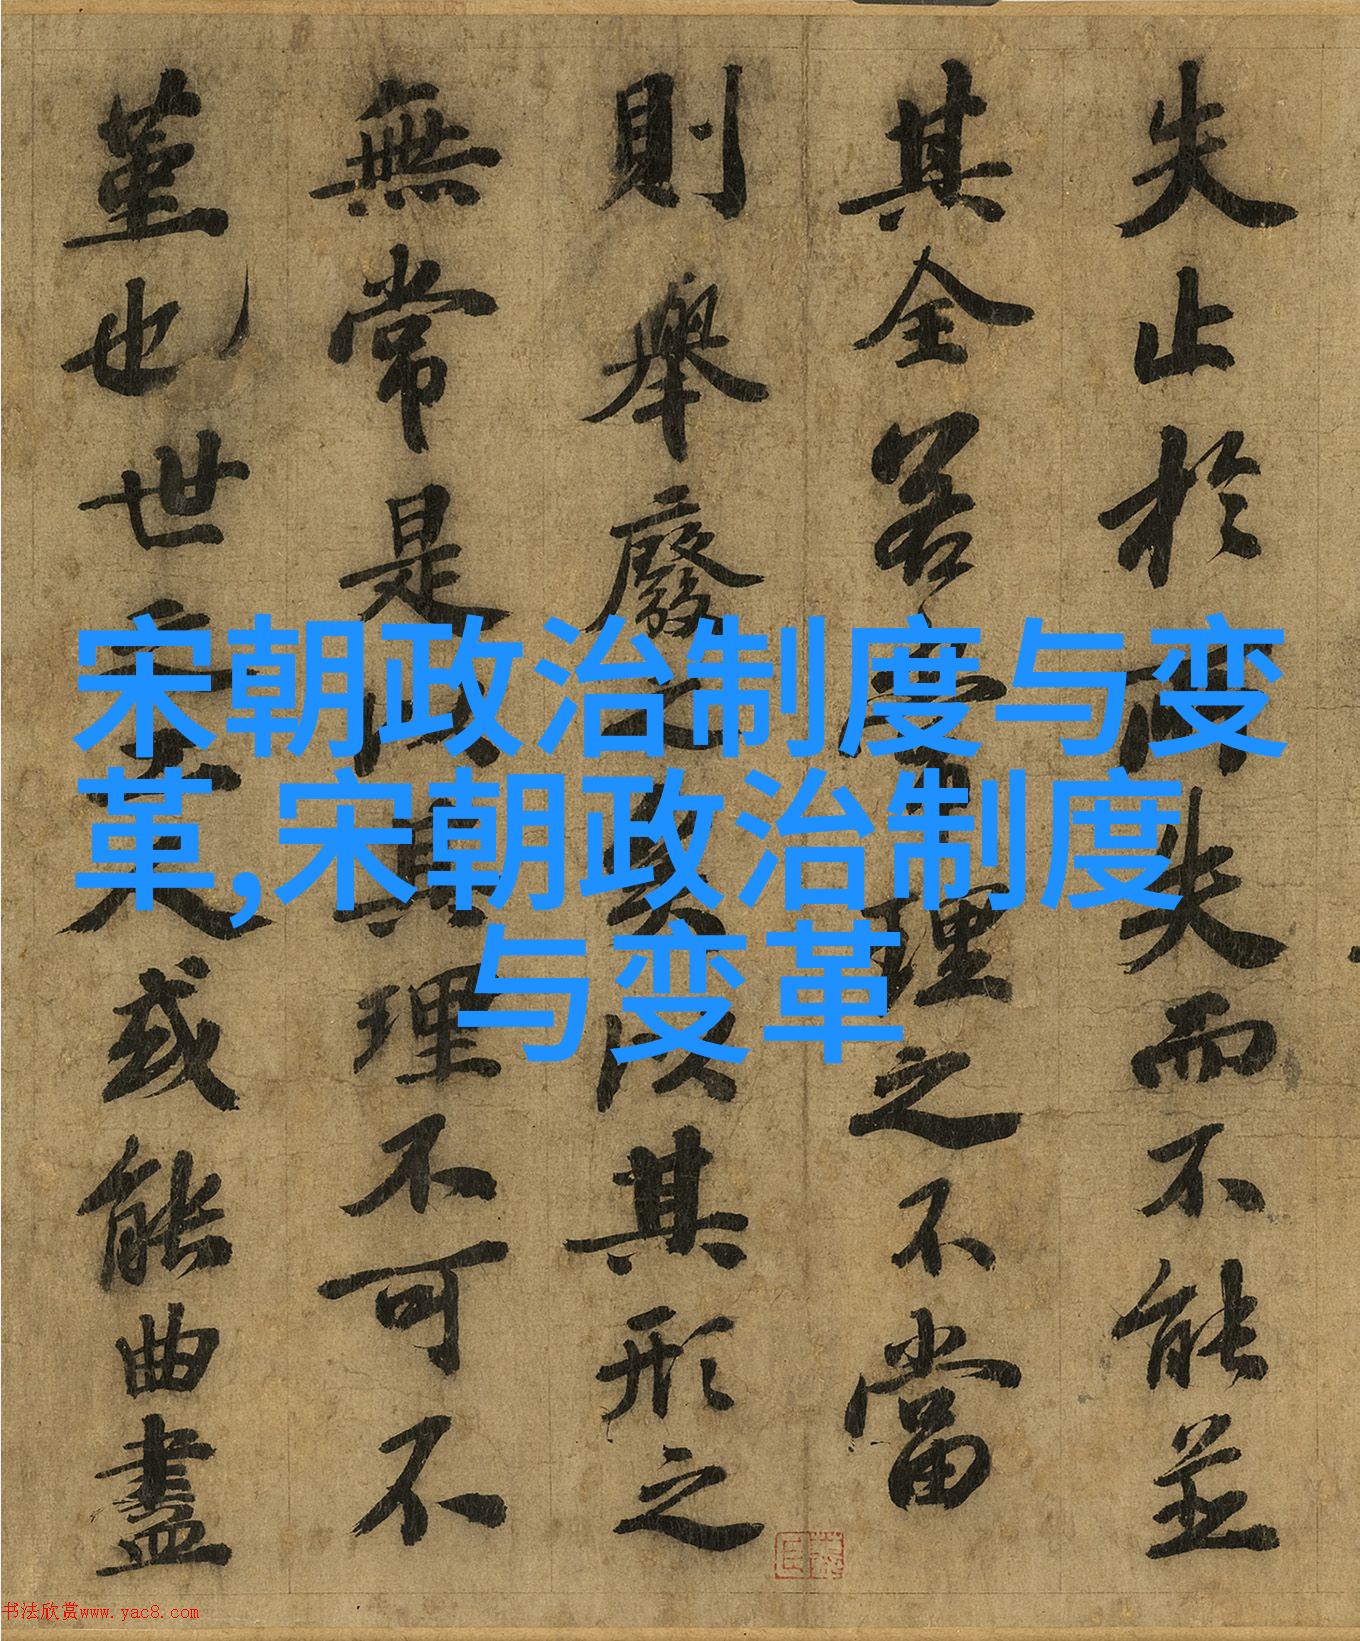 失止於所失而不能並
其全若常理之不當
則舉廢之矣以其形之
無常是以其理不可不
堇也世之工人或能曲盡
宋朝政治制度与变
革,宋朝政治制度
与变革
书法欣赏www.yac8.com